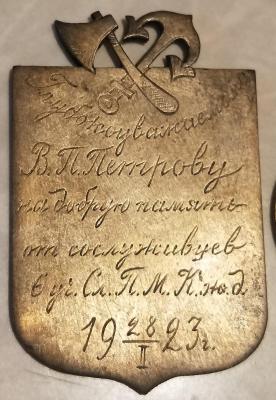 Глубокоуважаемому
В. П. Петрову
на добрую память
от сослуживцев
6 уч. Сл. П. М. К. ж. д.
19 28/II 23 г.